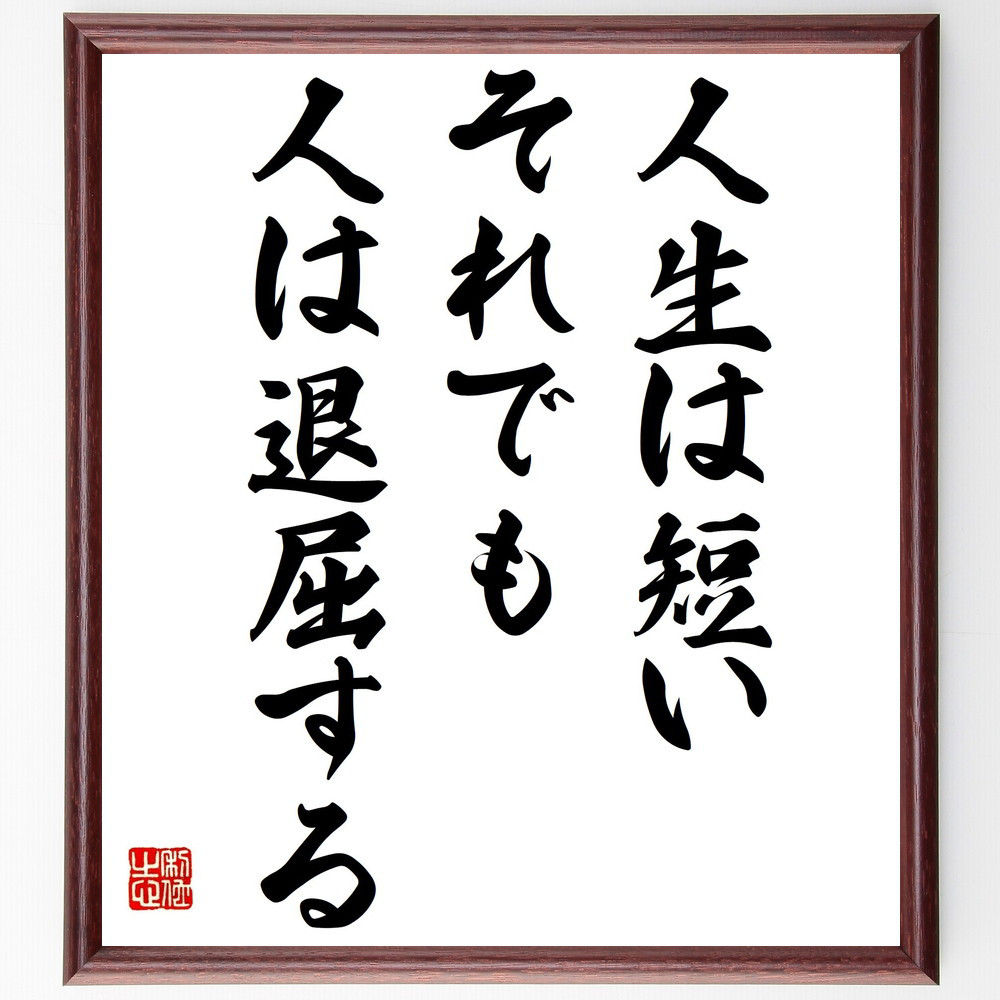 人生は短い
それでも
人は退屈する